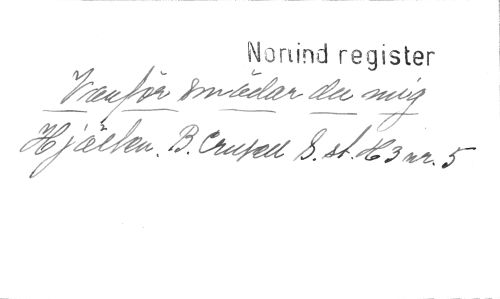 Norlind register
Varför smädar du mig
Hjälten. B. Crusell S. st. H 3 nr. 5